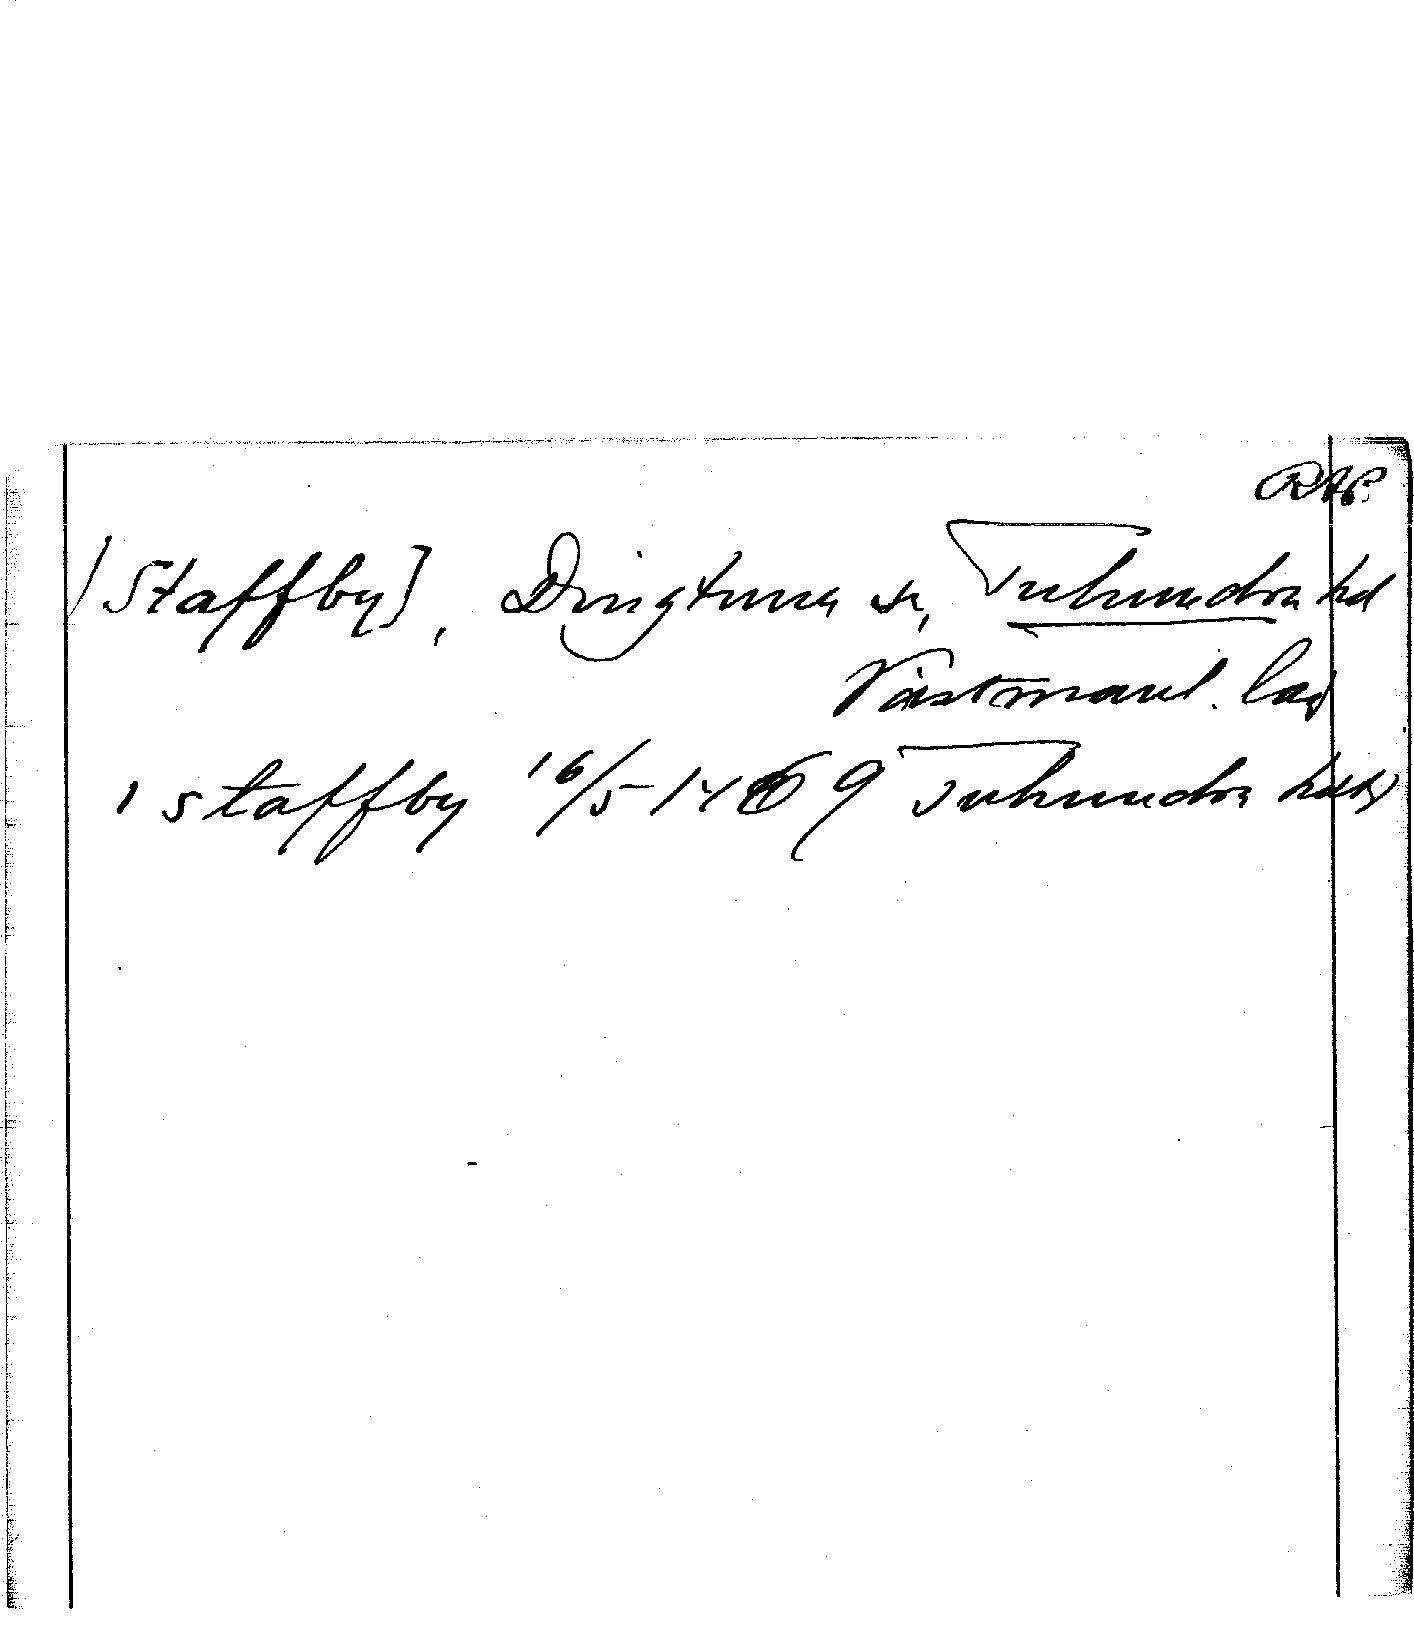 RAP.
[Staffby], Dingtuna sn, Tuhundra hd
Västmanl. län
i staffby 16/5 1469 Tuhundra hdr